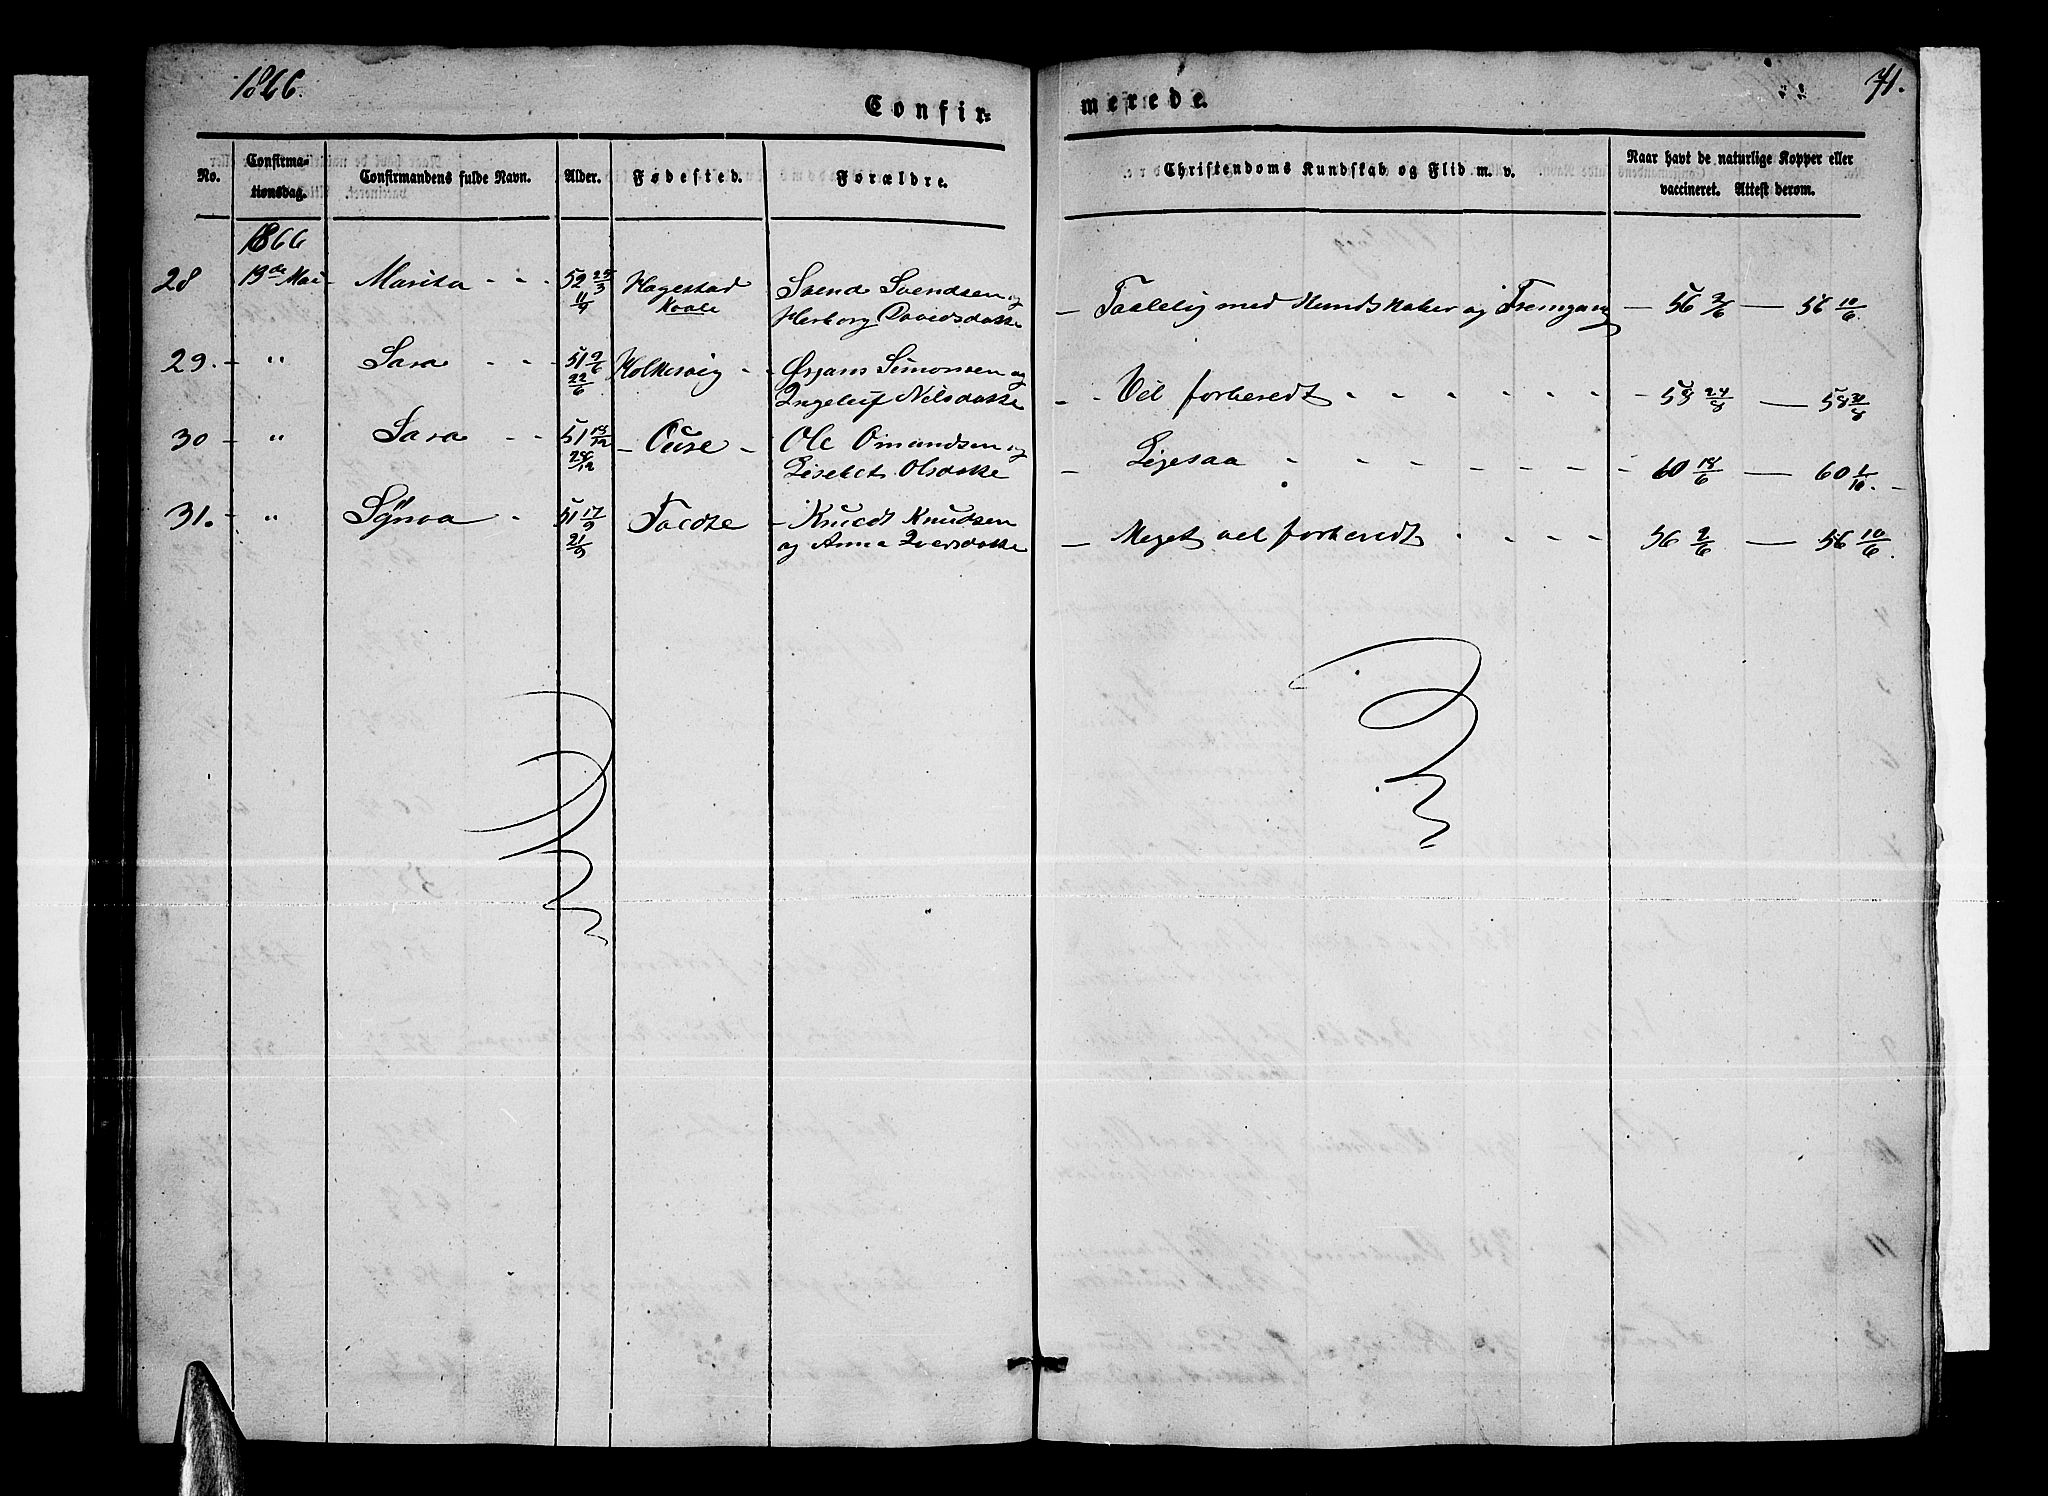 1866.
71.
Confir=
merede.
No.
Confirma-
tionsdag.
Confirmandens fulde Navn.
Alder.
Fødested.
Forældre.
Christendoms Kundskab og Flid m. v.
Naar havt de naturlige Kopper eller
vaccineret. Attest derom.
1866
28 13de Mai Marita - - 52 25/3 11/4 Hagestad Svend Svendsen og
Herborg Davidsdatte
- Taalelig med Kundskaber og Fremgang - 56 2/6 - 56 10/6.
29. - " Sara - - 51 9/6 22/6 Holkesvig - - Ørjans Simonsen og
Ingeleif Nilsdatte
- - Vel forberedt - - - - - - - 58 24/8 - 58 31/8
30 - " Sara - - 51 18/12 28/12 - Ouse - Ole Omundsen og
Liselet Olsdatte
- Ligesaa - - - - - - - - 60 18/6 - 60 1/10. -
31. - " Synva - 51 17/9 21/9 Tvedte - Knudt Knudsen
og Anna Iversdatte
- Meget vel forberedt - - - - 56 2/6 - 56 10/6.